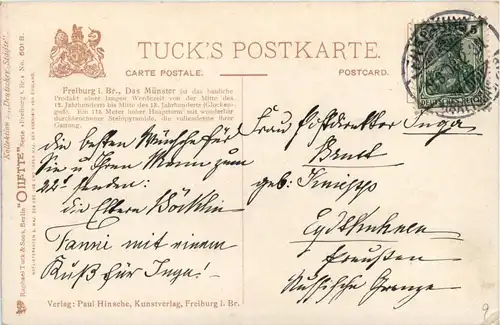 TUCK'S POSTKARTE.
CARTE POSTALE. POSTCARD.
Kollektion "Deutscher Städte"
Raphael Tuck & Sons, Berlin "OILETTE" Serie "Freiburg i. Br." No. 601 B.
Freiburg i. Br., Das Münster ist das bauliche
Produkt einer langen Werdezeit von der Mitte des
12. Jahrhunderts bis Mitte des 15. Jahrhunderts
Ein 115 Meter hoher Hauptturm mit wundervoller
durchbrochener Steinpyramide, die vollendetste ihrer
Gattung.
die besten Wünsche für
Sie u Ihren Mann zum
22t senden:
die Eltern Böcklin
Fanni mit einem
Kuß für Inge!
Frau Inga
geb:
Eydtkuhnen
Preußen
Russische Grenze
5
Verlag: Paul Hinsche, Kunstverlag, Freiburg i. Br.
9